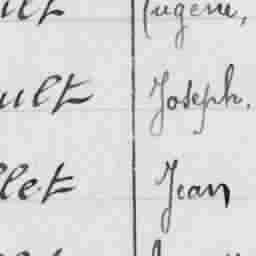 Eugène,
ult Joseph.
let Jean